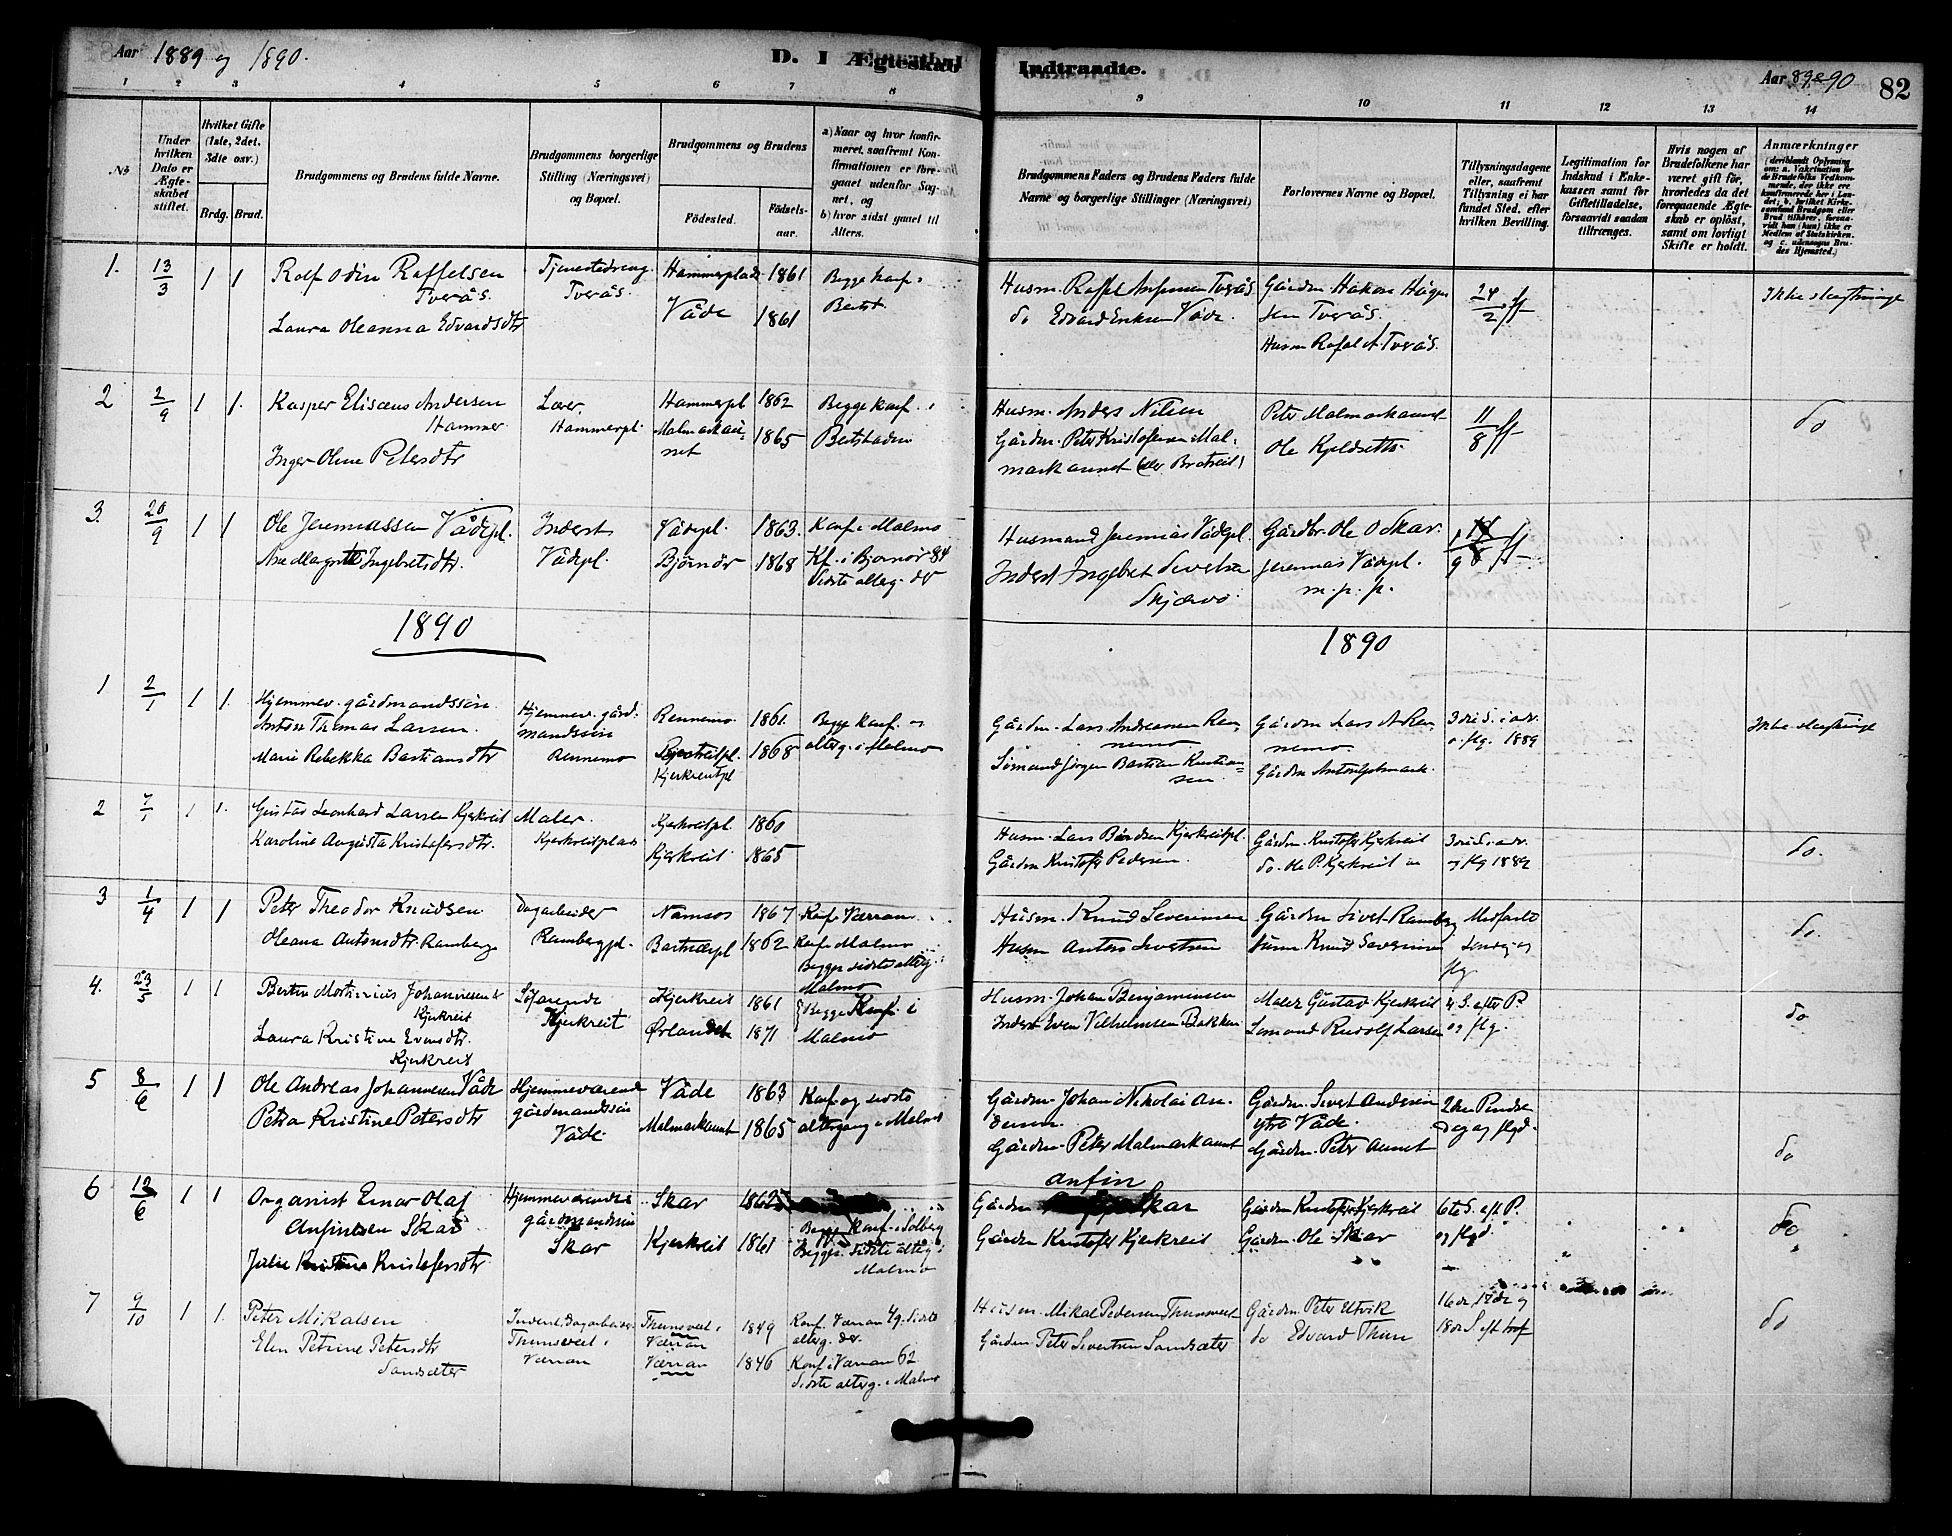 Aar 1889 og 1890.
D. I Ægteskab Indtraadte.
Aar 89 90
82
1 2 3 4 5 6 7 8 9 10 11 12 13 14
No
Under hvilken Dato er Ægteskabet stiftet.
Hvilket Gifte (1ste, 2det, 3die osv.)
Brdg. Brud.
Brudgommens og Brudens fulde Navne.
Brudgommens borgerlige Stilling (Næringsvei) og Bopæl.
Brudgommens og Brudens
Födested.
Födselsaar.
a) Naar og hvor konfirmeret, saafremt Konfirmationen er foregaaet udenfor Sognet, og
b) hvor sidst gaaet til Alters.
Brudgommens Faders og Brudens Faders fulde Navne og borgerlige Stillinger (Næringsvei)
Forlovernes Navne og Bopæl.
Tillysningsdagene eller, saafremt Tillysning ei har fundet Sted, efter hvilken Bevilling.
Legitimation for Indskud i Enkekassen samt for Giftetilladelse, forsaavidt saadan tiltrænges.
Hvis nogen af Brudefolkene har været gift før, hvorledes da det foregaaende Ægteskab er oplöst, samt om lovligt Skifte er holdt.
Anmærkninger
1. 13/3 1 1
Rolf Odin Raffelsen
Tverås.
Laura Oleanna Edvardsdtr
Tjenestedreng
Tverås.
Hammerplads 1861
Våde 1861
Begge konf. i
Beitst.
Husm. Raffel Tverås
do Edvard Eriksen Våde.
Gårdm Hakon Hågensen Tverås.
Husm Rafal A. Tverås.
24/2 ff
Ikke slægtninge
2 2/9 1 1.
Kasper Elisæus Andersen
Hammer
Inger Oline Petersdtr
Hammerpl.
Hammerpl 1862
Malmarkaunet 1865
Begge konf. i
Beitstaden
Husm. Anders Nilsen
Gårdm. Peter Kristofersen Malmarkaunet
Peter Malmarkaunet
11/8 ff
do
3. 20/9 1 1
Ole Jeremiassen Vådepl.
Ingebretsdtr.
Inderst
Vådepl.
Vådepl. 1863.
Bjørnør 1868
Konf. i Malmo
Kf. i Bjørnør 84
Sidste alterg. do
Husmand Jeremias Vådepl.
Inderst Ingebret Sivertsen
Gårdbr. Ole O Skar.
Jeremias Vådepl.
m. p. p.
ff
1890
1890
1 2/1 1 1.
Hjemmev. gårdmandssøn
Anton Thomas Larsen.
Marie Rebekka Bastiansdtr
Hjemmev. gårdmandssøn
Rennemo
Rennemo. 1861.
Kjerkreitpl 1868
Begge konf. og
alterg. i Malmo
Gårdm. Lars Andreassen Rennemo
Sømand Jørgen Bastian Kristiansen
Gårdm Lars A Rennemo.
3die S. i adv.
o. flg. 1889
Ikke slægtninge
2 7/1 1 1.
Gustav Leonhard Larsen Kjerkreit
Karoline Augusta Kristofersdtr.
Maler.
Kjerkreitplads
Kjerkreitpl. 1860
Kjerkreit 1865
Husm. Lars Kjerkreitpl.
Gårdm Kristofer Pedersen.
Gårdm. Kristofer Kjerkreit
do. Ole P. Kjerkreit
3die S i adv.
og flg 1889
do.
3 1/4 1 1
Peter Theodor Knudsen
Oleana Antonsdtr. Ramberg
Dagarbeider
Rambergpl.
Namsos 1867
1862
Konf. Værran
Konf. i Malmo
Begge sidste alterg. i
Malmo
Husm. Knud Severinsen
Husm Anton Sivertsen
Gårdm Sivert Ramberg
Husm Knud Severinsen
Midfaste
Søndag og
flg
do.
4. 23/5 1 1
Johannesen
Kjerkreit
Laura Kristine Evensdtr.
Kjerkreit
Søfarende
Kjerkreit
Kjerkreit 1861
Ørlandet 1871
Begge Konf. i
Malmo
Husm. Johan Benjaminsen
Inderst Even Vilhelmsen Bakken
Maler Gustav Kjerkreit
Sømand Rudolf Larsen
4 S. efter P.
og flg.
do
5 8/6 1 1
Ole Andreas Johannesen Våde
Petra Kristine Petersdtr
Hjemmeværende
gårdmandssøn
Våde.
Våde 1863
Malmarkaunet 1865
Konf. og sidste
altergang i Malmo
Gårdm. Johan Nikolai Andersen.
Gårdm. Peter Malmarkaunet
Gårdm. Sivert Andersen
ytre Våde.
Gårdm. Peter Aunet
2den Pindsedag og flgd.
do
6 12/6 1 1
Organist Einar Olaf
Anfinsen Skar
Julie Kristine Kristofersdtr
Hjemmeværende
gårdmandssøn
Skar
Skar 1862
Kjerkreit 1861
Begge konf. i Solberg
Begge sidste alterg. i
Malmo
Anfin
Gårdm. Skar
Gårdm Kristofer Kjerkreit
Gårdm Kristofer Kjerkreit
Gårdm. Ole Skar
6te S. eft P.
og flgd.
do
7 9/10 1 1.
Peter Mikalsen
Elen Petrine Petersdtr
Sandsæter
Inderst. Dagarbeider
Værran
Værran 1849
Værran 1846
Konf. Værran Sidste
alterg. der.
Konf. i Værran 62
Sidste alterg. i Malmo
Husm. Mikal Pedersen
Gårdm. Peter Sivertsen Sandsæter
Gårdm. Peter Utvik
do Edvard Thun
16de, 17de og
18de S. eft tref
do